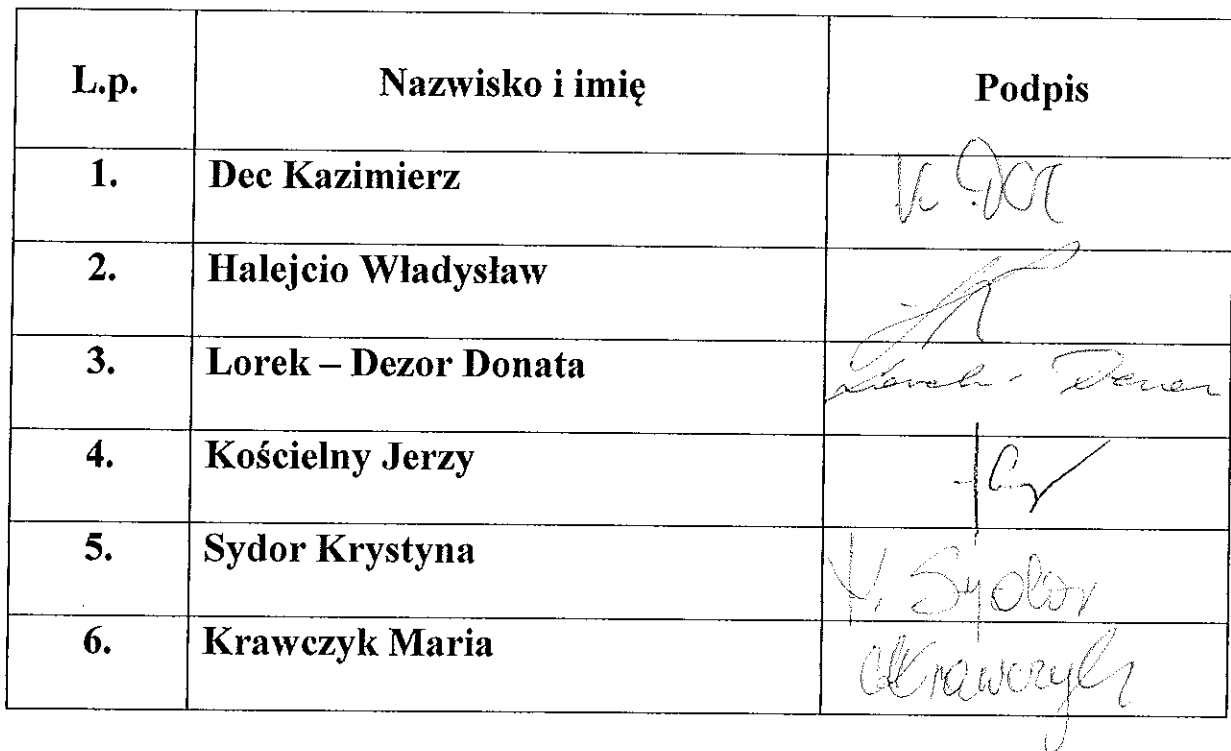 L.p. Nazwisko i imię Podpis
1. Dec Kazimierz K. Dec
2. Halejcio Władysław
3. Lorek – Dezor Donata Lorek - Dezor
4. Kościelny Jerzy
5. Sydor Krystyna K. Sydor
6. Krawczyk Maria MKrawczyk